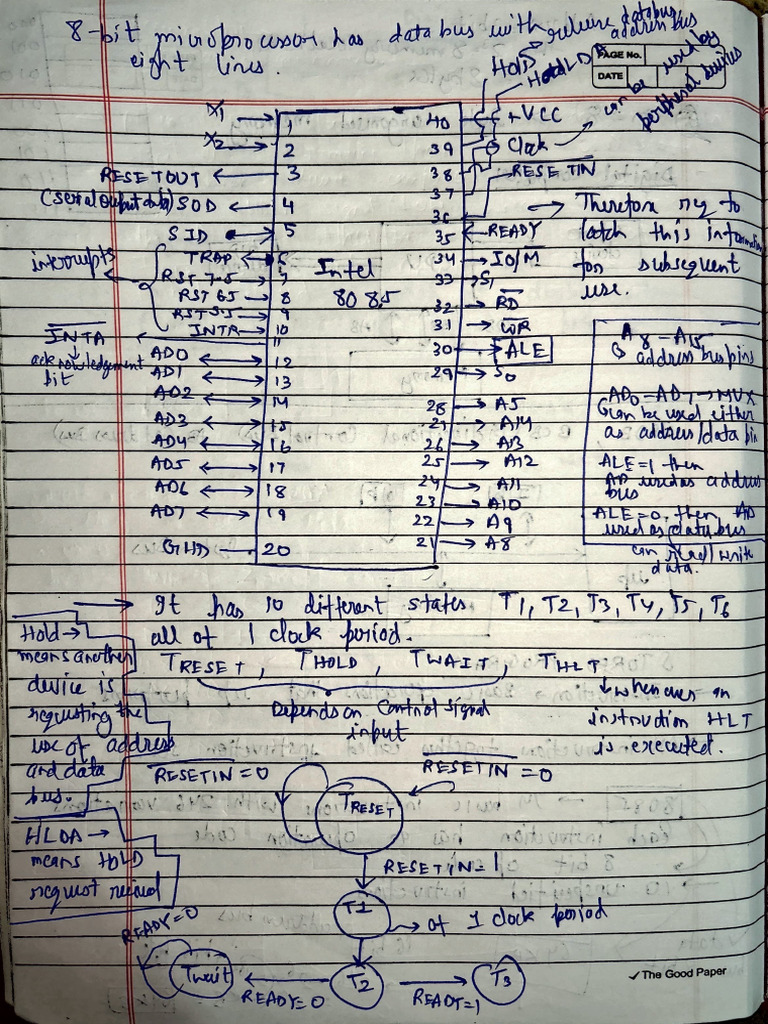 8-bit microprocessor has data bus with
eight lines.
HOLD → release databus
address bus
HOLDA
can be used by
peripheral devices
PAGE No.
DATE
X1
1
X2
2
RESETOUT
3
(serial output data) SOD
4
SID
5
interrupts
TRAP
6
RST 7.5
7
RST 6.5
8
RST 5.5
9
INTR
10
INTA
11
acknowledgement
bit
AD0
12
AD1
13
AD2
14
AD3
15
AD4
16
AD5
17
AD6
18
AD7
19
GND
20
Intel
8085
40
+VCC
39
38
Clock
37
RESETIN
36
35
READY
34
IO/M
33
S1
32
RD
31
WR
30
ALE
29
S0
28
A5
27
A14
26
A13
25
A12
24
A11
23
A10
22
A9
21
A8
→ Therefore try to
latch this information
for subsequent
use.
A8 – A15
address bus pins
AD0 – AD7 → MUX
can be used either
as address/data pin
ALE=1 then
AD used as address
bus
ALE=0 then AD
used as data bus
can read/write
data.
→ It has 10 different states T1, T2, T3, T4, T5, T6
all of 1 clock period.
TRESET, THOLD, TWAIT, THLT
Depends on Control signal
input
whenever an
instruction HLT
is executed.
Hold →
means another
device is
requesting the
use of address
and data
bus.
HLDA →
means HOLD
request recieved
RESETIN = 0
RESETIN = 0
TRESET
RESETIN=1
T1
→ of 1 clock period
READY=0
Twait
READY=0
T2
READY=1
T3
✓ The Good Paper